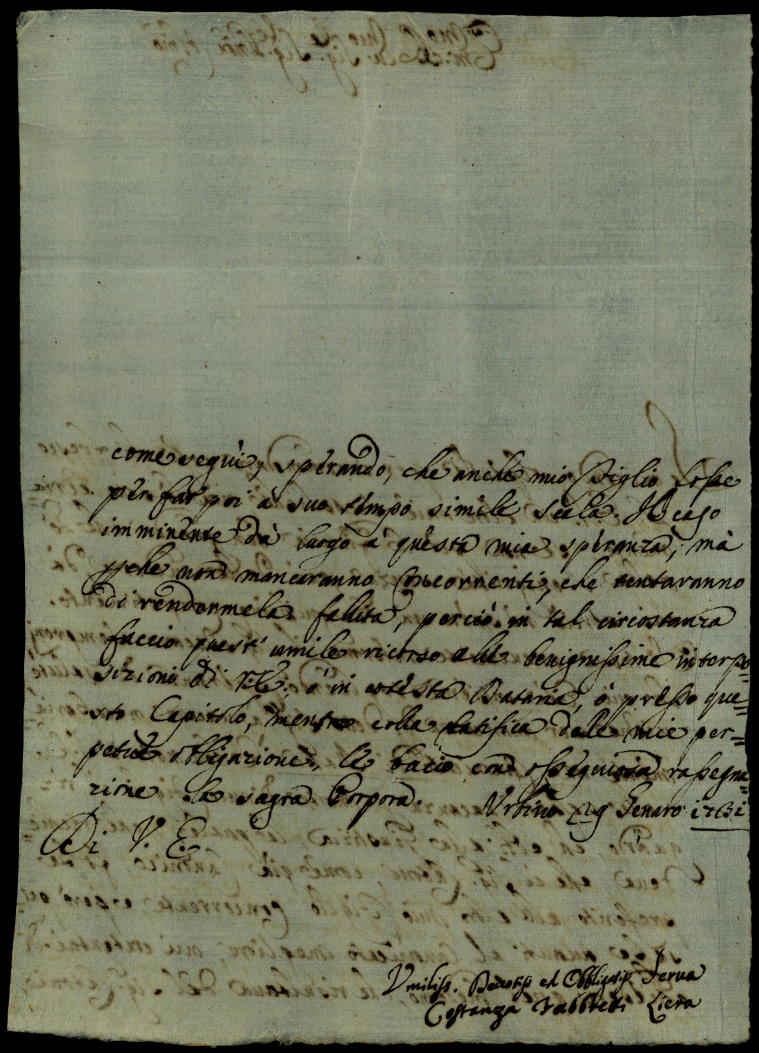 come seguì, sperando, che anche mio Figlio fosse
per far poi à suo tempo simile scala. Il caso
imminente dà luogo à questa mia speranza, mà
pche non mancaranno Concorrenti, che tentaranno
di rendermela fallita, perciò in tal circostanza
faccio quest' umile ricorso alle benignissime interpo=
sizioni di V.E. ò in cotesta Dataria, ò presso que=
sto Capitolo, mentre colla ratifica delle mie per=
petue obbligazione, le bacio con ossequiosa rassegna=
zione la sagra Porpora. Urbino 29 Genaro 1731
Di V. E.
Umiliss. Devotiss ed Obbligatiss Serva
Costanza Fabbretti Liera